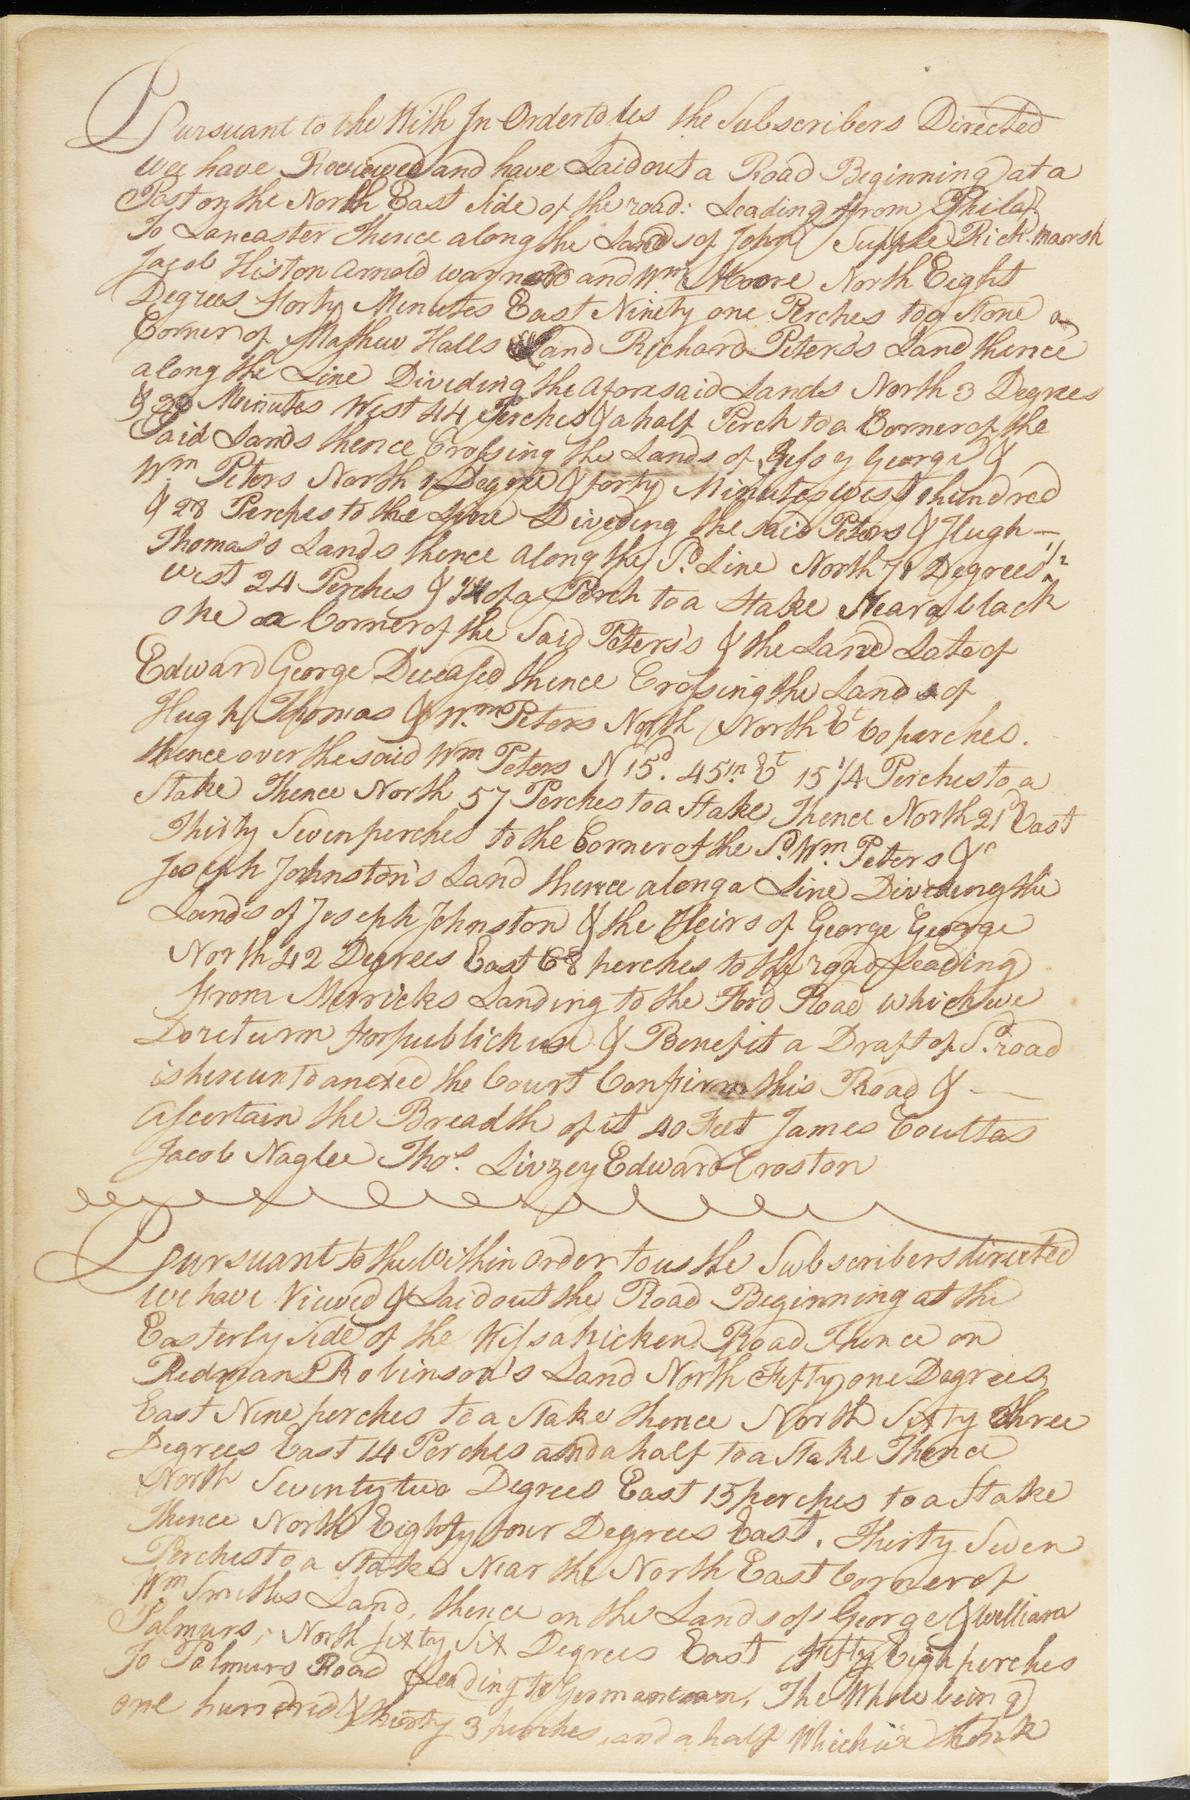 Pursuant to the With In Order to Us the Subscribers Directed
wee have Reviewed and have Laid out a Road Beginning at a
Post on the North East Side of the road: Leading from Philad
To Lancaster Thence along the Lands of John Supple Rich. Marsh
Jacob Histon Arnold and Wm Moore North Eight
Degrees Forty Minutes East Ninety one Perches to a Stone a
Corner of Mathew Halls Land Richard Peters's Land thence
along the Line Dividing the aforesaid Lands North 3 Degrees
& 20 Minutes West 44 Perches & a half Perch to a Corner of the
Said Lands thence Crossing the Lands of George &
Wm Peters North 1 Degree & forty Minutes West 1 hundred
& 28 Perches to the Line Diveding the said Peters & Hugh —
Thomas's Lands thence along the Sd. Line North 71 Degrees 1/2
west 24 Perches & 1/4 of a Perch to a Stake Near a black
oke a Corner of the Said Peters's & the Land Late of
Edward George Deceased thence Crossing the Lands of
Hugh Thomas & Wm. Peters North North Et 60 perches.
thence over the said Wm Peters N 15d. 45m Et 15 1/4 Perches to a
Stake Thence North 57 Perches to a Stake Thence North 21d East
Thirty Seven perches to the Corner of the Sd. Wm. Peters &
Joseph Johnston's Land thence along a Line Dividing the
Lands of Joseph Johnston & the Heirs of George George
North 42 Degrees East 68 perches to the road Leading
from Merricks Landing to the Ford Road which we
Do return for publick use & Benefit a Draft of Sd. road
is hereunto anexed the Court Confirm this Road & —
Ascertain the Breadth of it 40 Feet James Coultas
Jacob Naglee Thos. Livzey Edward Croston
Pursuant to the Within Order to us the Subscribers directed
we have Viewed & Laid out the Road Beginning at the
Easterly Side of the Wissahicken Road Thence on
Redman & Robinson's Land North Fifty one Degrees
East Nine perches to a Stake thence North Sixty three
Degrees East 14 Perches and a half to a Stake Thence
North Seventy two Degrees East 15 perches to a Stake
Thence North Eighty four Degrees East. Thirty Seven
Perches to a Stake Near the North East Corner of
Wm Smiths Land, thence on the Lands of George & William
Palmurs, North sixty Six Degrees East fifty Eigh perches
To Palmurs Road Leading to Germantown, The Whole being
one hundred & thirty 3 perches, and a half Which we think